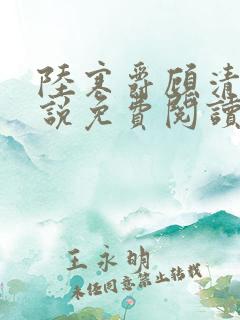 陸寒爵顧清
說免費閱讀
王永明
未經同意禁止轉載